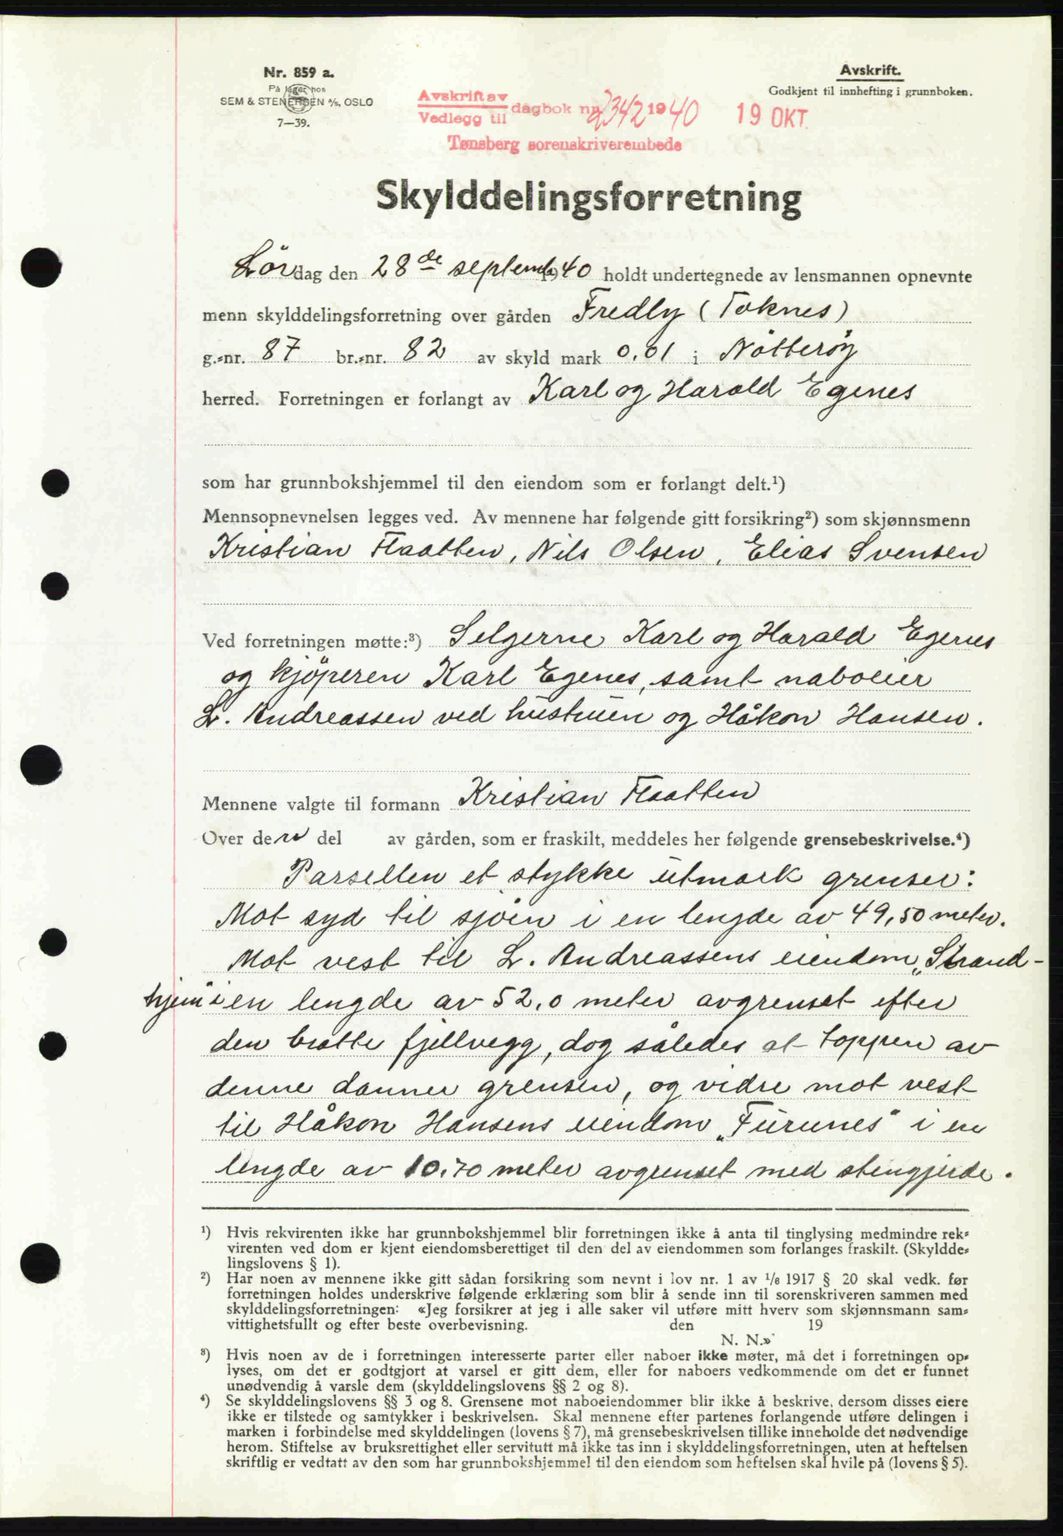 Nr. 859 a.
På lager hos
SEM & STENERSEN A/S, OSLO
7—39.
Avskrift.
Godkjent til innhefting i grunnboken.
Avskrift av
Vedlegg til dagbok nr. 2342 1940 19 OKT
Tønsberg sorenskriverembede
Skylddelingsforretning
Lørdag den 28de septemb. 1940 holdt undertegnede av lensmannen opnevnte
menn skylddelingsforretning over gården Fredly (Toknes)
g.-nr. 87 br.-nr. 82 av skyld mark 0,01 i Nøtterøy
herred. Forretningen er forlangt av Karl og Harald Egenes
som har grunnbokshjemmel til den eiendom som er forlangt delt.¹)
Mennsopnevnelsen legges ved. Av mennene har følgende gitt forsikring²) som skjønnsmenn
Kristian Flaatten, Nils Olsen, Elias Svensen
Ved forretningen møtte:³) Selgerne Karl og Harald Egenes
og kjöperen Karl Egenes, samt naboeier
L. Andreassen ved hustruen og Håkon Hansen.
Mennene valgte til formann Kristian Flaatten
Over den del av gården, som er fraskilt, meddeles her følgende grensebeskrivelse.⁴)
Parsellen et stykke utmark grenser:
Mot syd til sjöen i en lengde av 49,50 meter.
Mot vest til L. Andreassens eiendom „Strand-
hjem" i en lengde av 52,0 meter avgrenset efter
den bratte fjellvegg, dog således at toppen av
denne danner grensen, og vidre mot vest
til Håkon Hansens eiendom „Furunes" i en
lengde av 10,70 meter avgrenset med stengjerde.
¹) Hvis rekvirenten ikke har grunnbokshjemmel blir forretningen ikke å anta til tinglysing medmindre rek-
virenten ved dom er kjent eiendomsberettiget til den del av eiendommen som forlanges fraskilt. (Skyldde-
lingslovens § 1).
²) Har noen av mennene ikke gitt sådan forsikring som nevnt i lov nr. 1 av 1/8 1917 § 20 skal vedk. før
forretningen holdes underskrive følgende erklæring som blir å sende inn til sorenskriveren sammen med
skylddelingsforretningen: «Jeg forsikrer at jeg i alle saker vil utføre mitt hverv som skjønnsmann sam-
vittighetsfullt og efter beste overbevisning. den 19
N. N.»
³) Hvis noen av de i forretningen interesserte parter eller naboer ikke møter, må det i forretningen op-
lyses, om det er godtgjort at varsel er gitt dem, eller for naboers vedkommende om det er funnet
unødvendig å varsle dem (skylddelingslovens §§ 2 og 8).
⁴) Se skylddelingslovens §§ 3 og 8. Grensene mot naboeiendommer blir ikke å beskrive, dersom disses eiere
ikke er tilstede og samtykker i beskrivelsen. Skal mennene efter partenes forlangende utføre delingen i
marken i forbindelse med skylddelingen (lovens § 7), må grensebeskrivelsen tillike inneholde det nødvendige
herom. Stiftelse av bruksrettighet eller servitutt må ikke tas inn i skylddelingsforretningen, uten at heftelsen
skriftlig er vedtatt av den som har grunnbokshjemmel til den eiendom som heftelsen skal hvile på (lovens § 5).